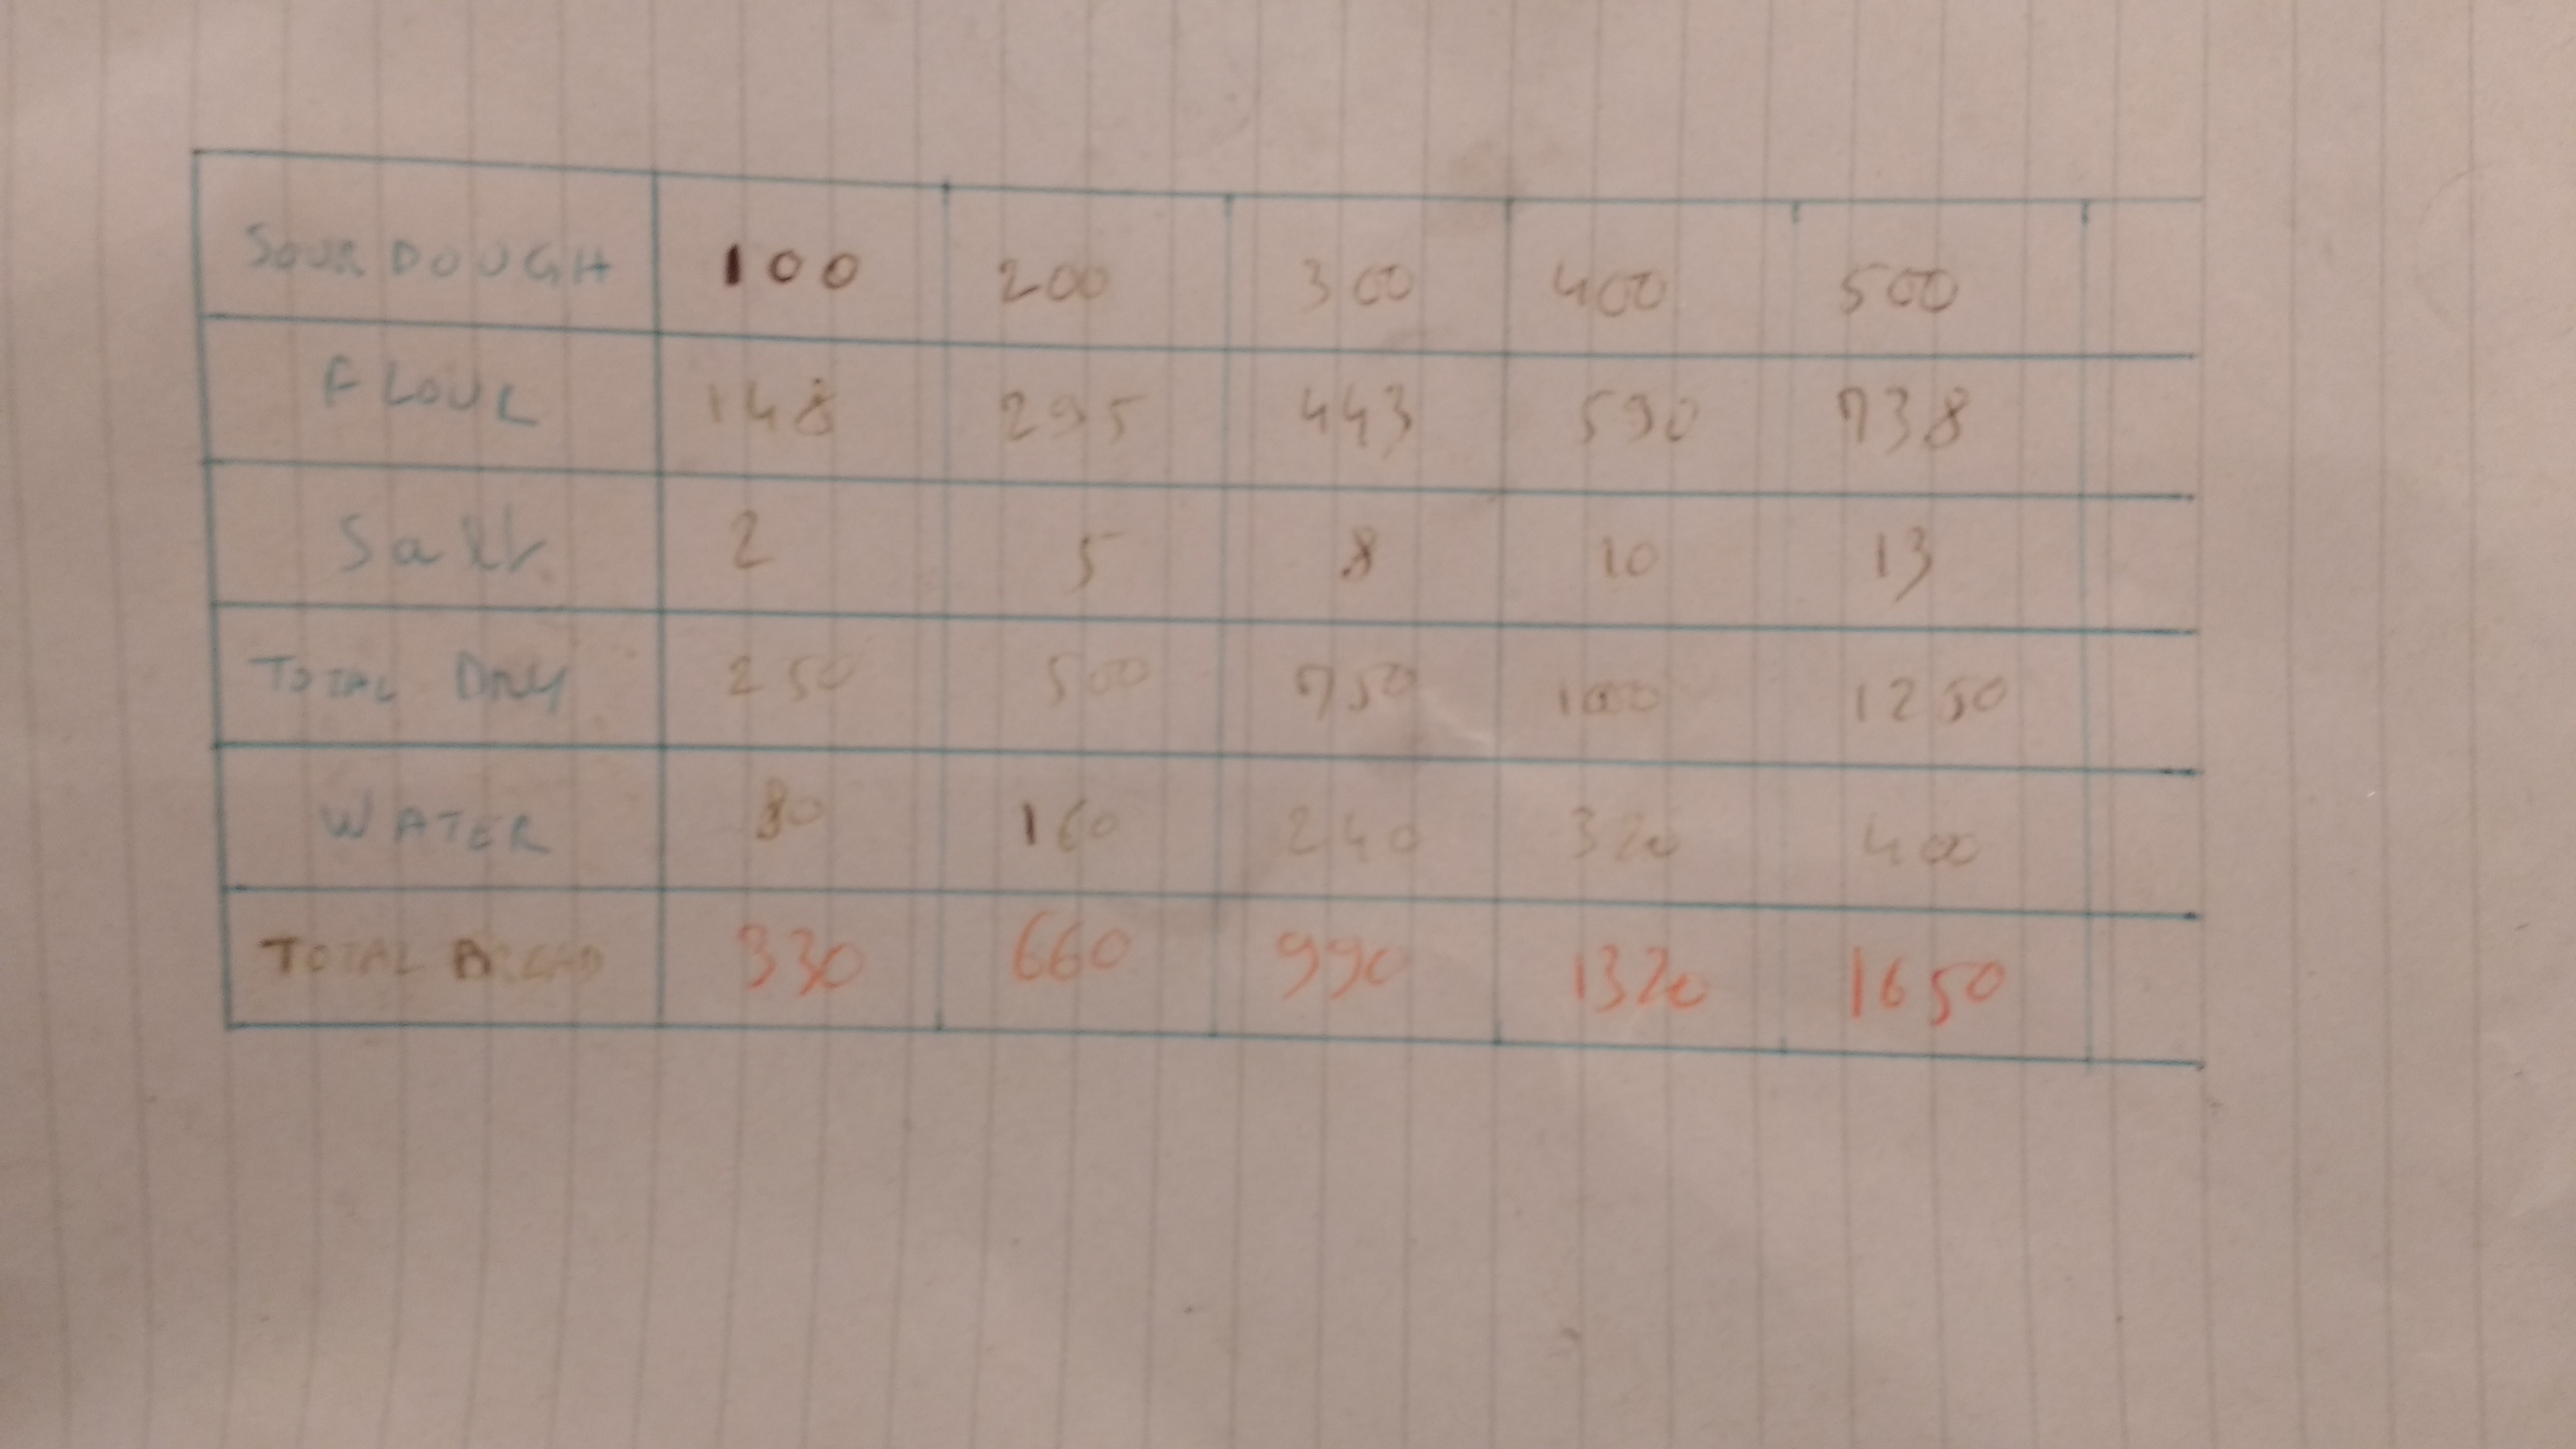 SOUR DOUGH 100 200 300 400 500
FLOUR 148 295 443 590 738
Salt 2 5 8 10 13
TOTAL DRY 250 500 750 1000 1250
WATER 80 160 240 320 400
TOTAL BREAD 330 660 990 1320 1650